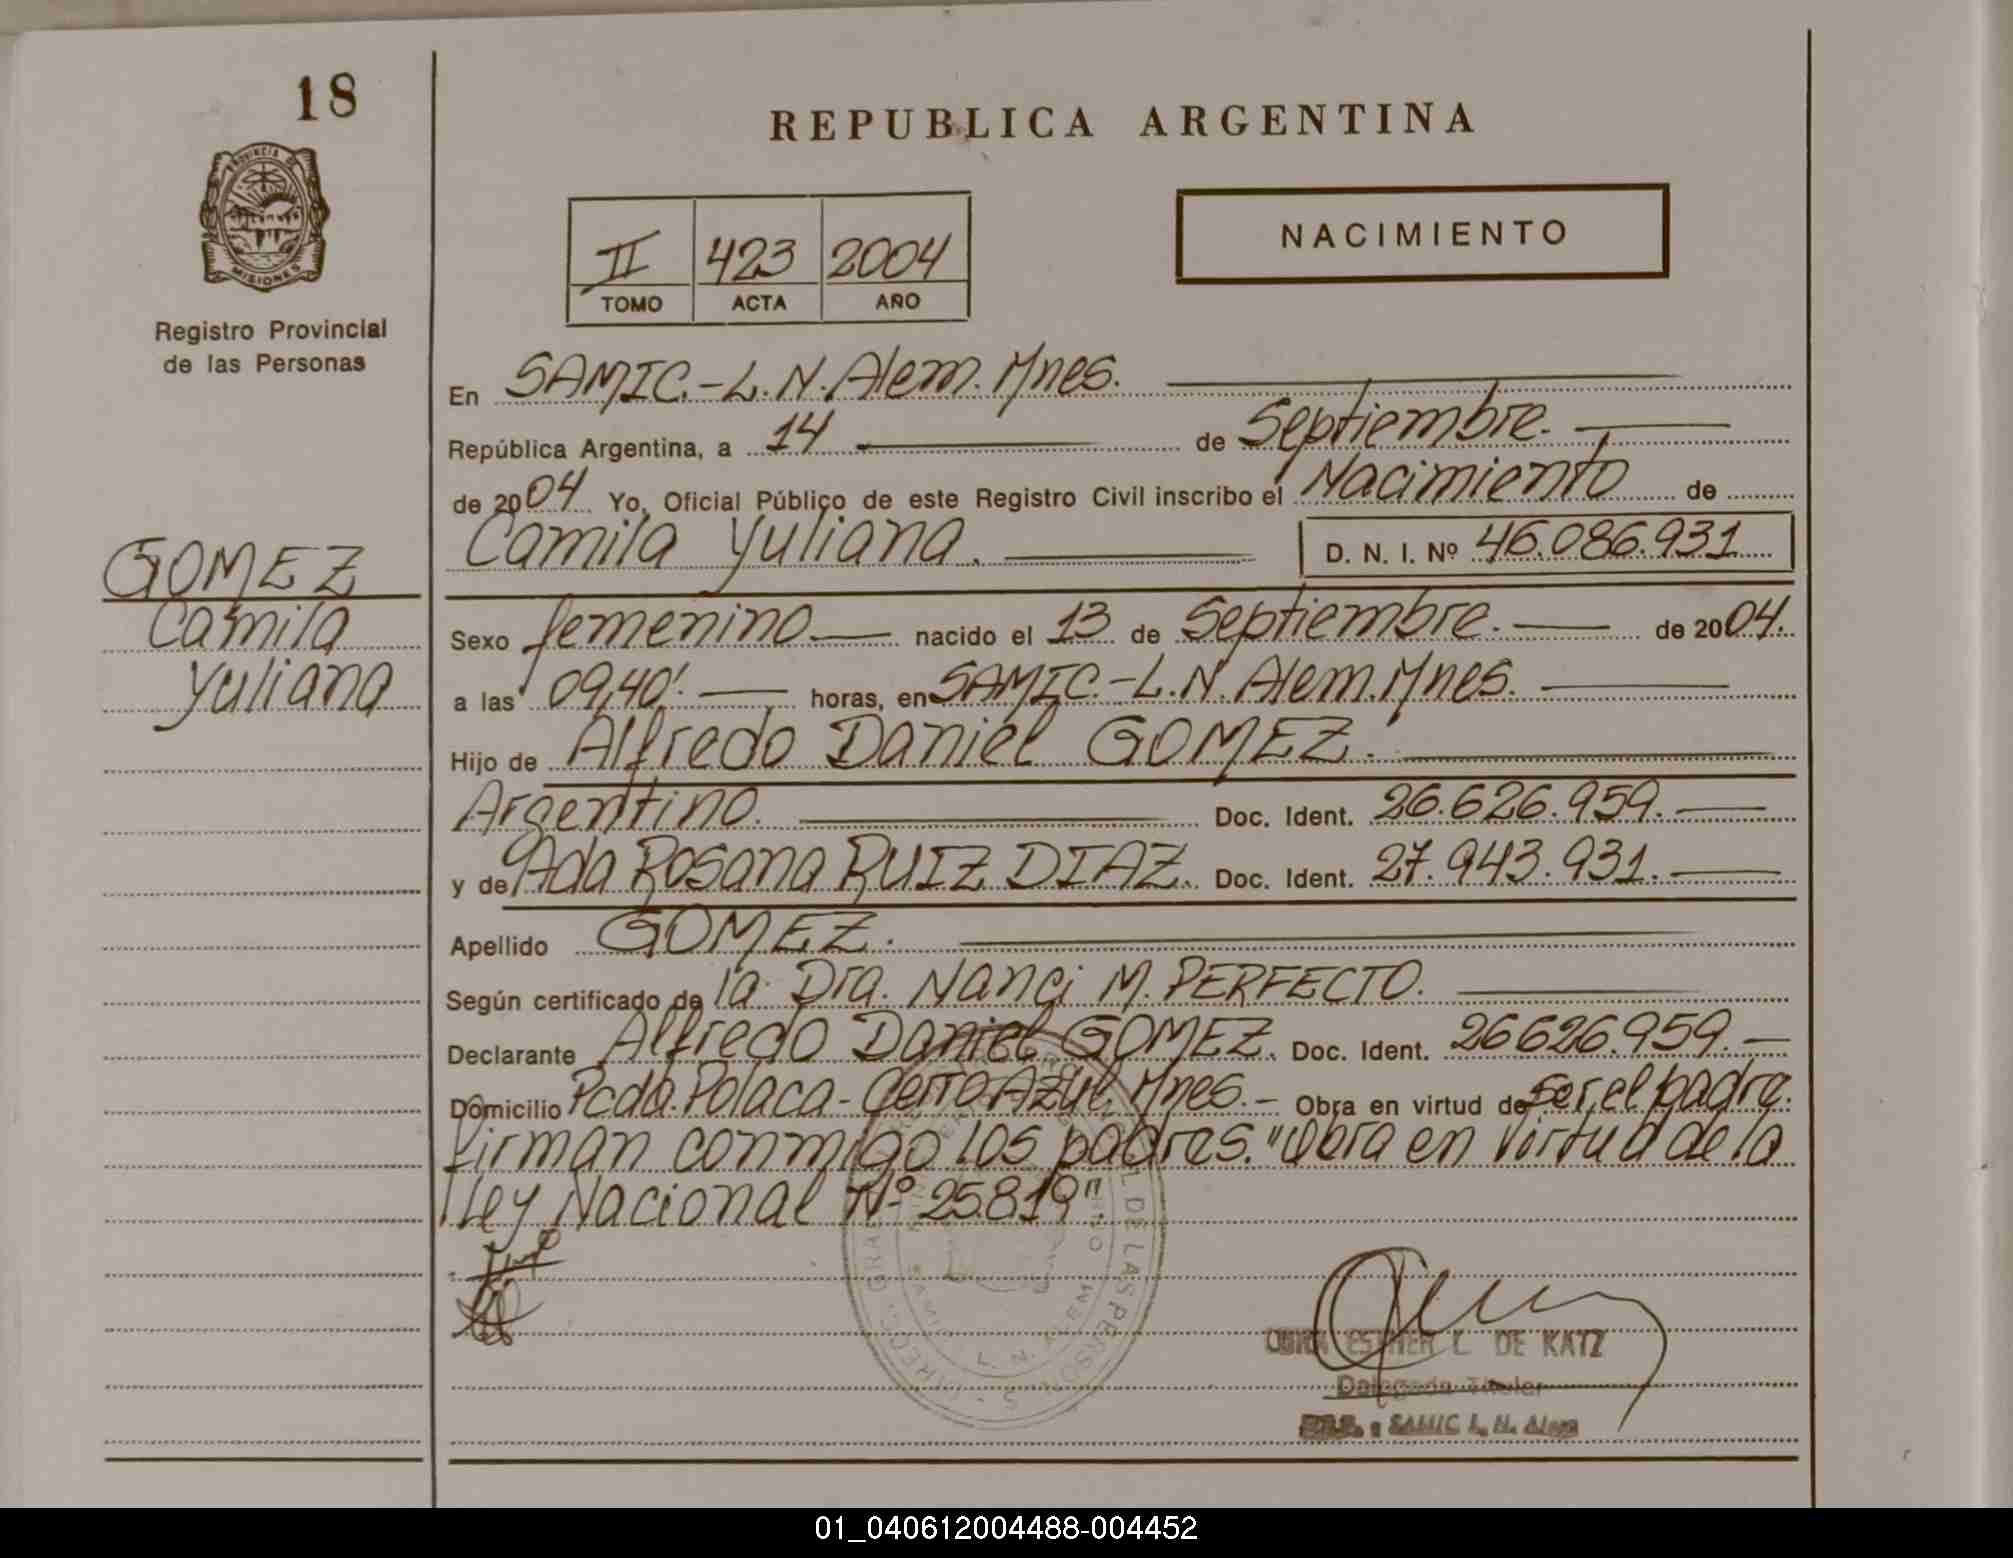 18
PROVINCIA DE
MISIONES
Registro Provincial
de las Personas
GOMEZ
Camila
Yuliana
REPUBLICA ARGENTINA
II 423 2004
TOMO ACTA AÑO
NACIMIENTO
En SAMIC.-L.N. Alem. Mnes.
República Argentina, a 14 de Septiembre.
de 2004 Yo, Oficial Público de este Registro Civil inscribo el Nacimiento de
Camila Yuliana. D. N. I. Nº 46.086.931
Sexo femenino nacido el 13 de Septiembre. de 2004.
a las 09,40'. horas, en SAMIC.-L.N. Alem. Mnes.
Hijo de Alfredo Daniel GOMEZ.
Argentino. Doc. Ident. 26.626.959.
y de Ada Rosana RUIZ DIAZ. Doc. Ident. 27.943.931.
Apellido GOMEZ.
Según certificado de la Dra. Nanci M. PERFECTO.
Declarante Alfredo Daniel GOMEZ. Doc. Ident. 26626.959.
Domicilio Pcda. Polaca - Cerro Azul Mnes.- Obra en virtud de ser el padre.
firman conmigo los padres. "Obra en virtud de la
Ley Nacional Nº 25819".
DE LAS PERSONAS
SAMIC L. N. ALEM
ESTHER L. DE KATZ
Delegada Titular
SAMIC L. N. Alem
01_040612004488-004452